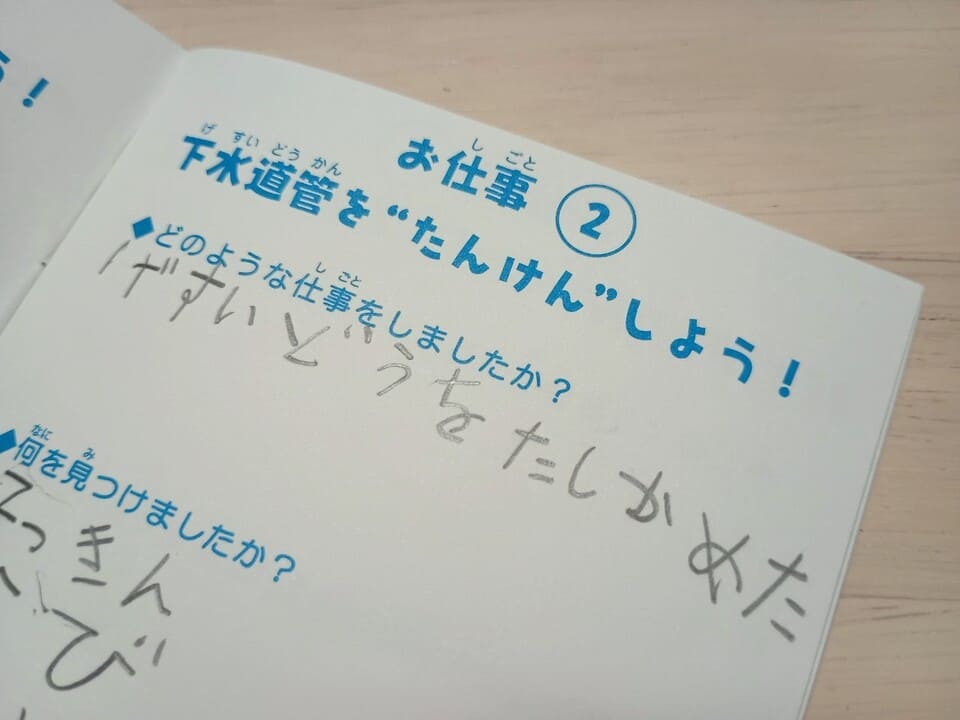 ！
お仕事 ②
しごと
下水道管を“たんけん”しよう！
げすいどうかん
◆どのような仕事をしましたか？
しごと
げすいどうをたしかめた
◆何を見つけましたか？
なに み
っきん
び